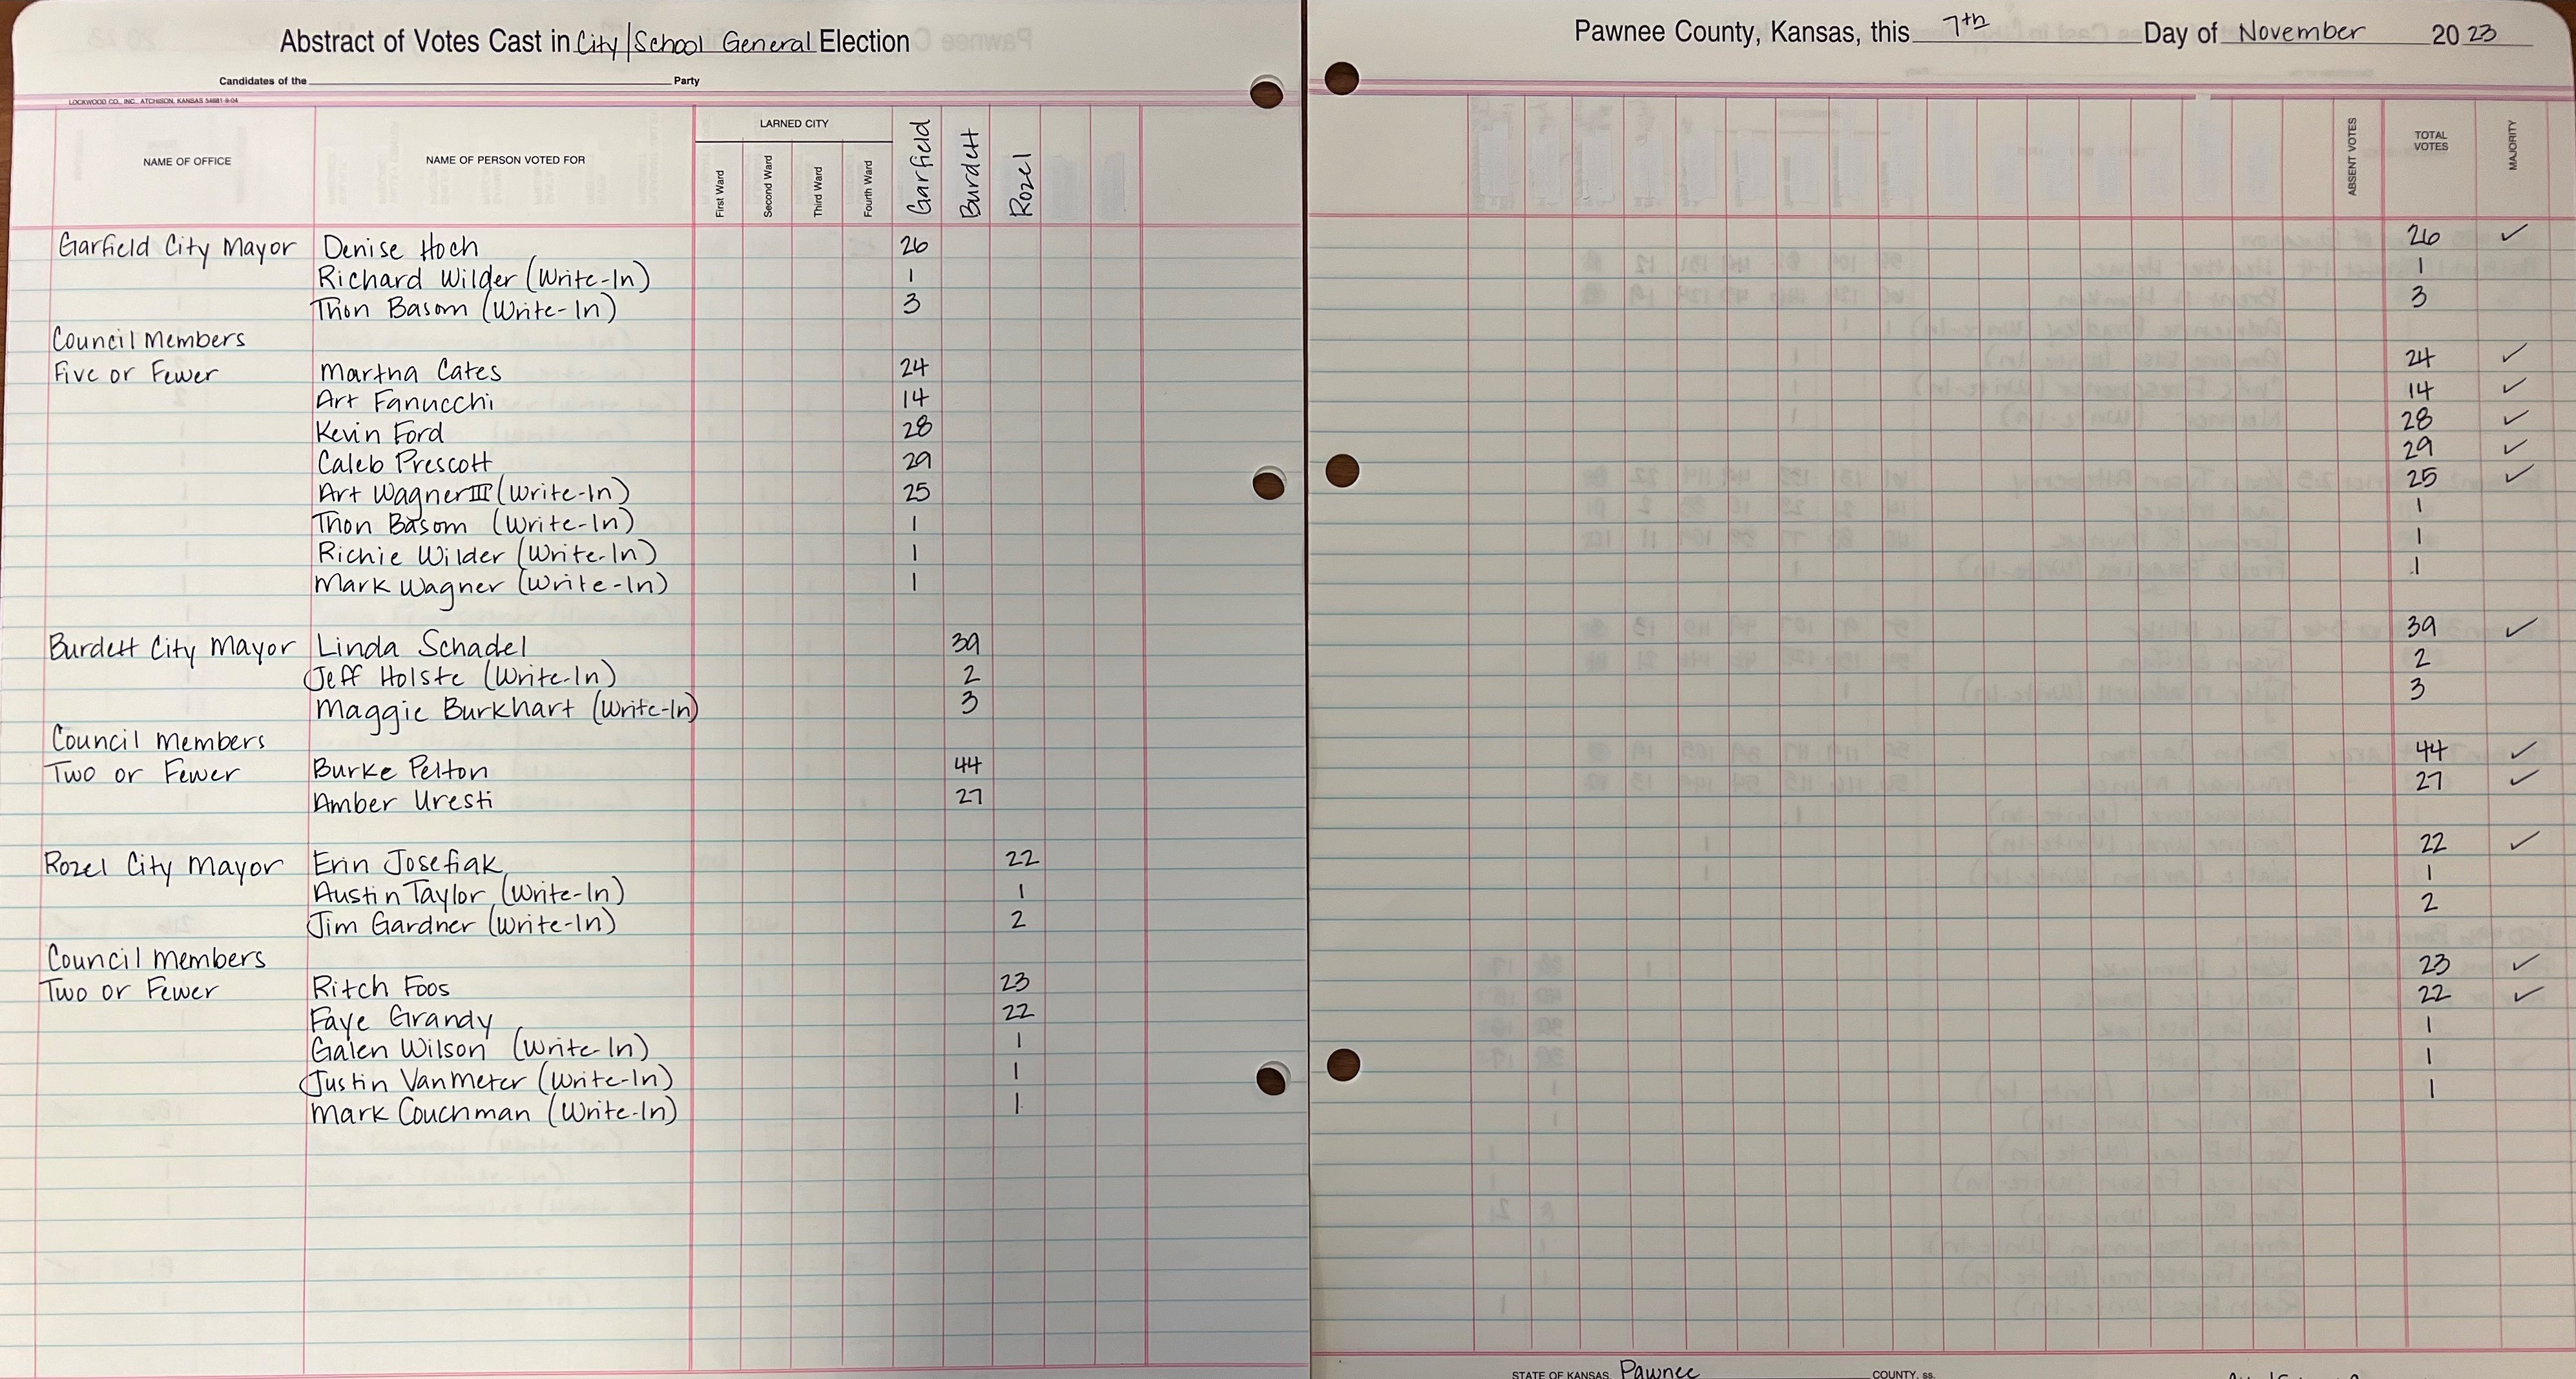 Abstract of Votes Cast in City/School General Election
Pawnee County, Kansas, this 7th Day of November 2023
Candidates of the Party
LOCKWOOD CO., INC., ATCHISON, KANSAS
NAME OF OFFICE NAME OF PERSON VOTED FOR LARNED CITY First Ward Second Ward Third Ward Fourth Ward Garfield Burdett Rozel ABSENT VOTES TOTAL VOTES MAJORITY
Garfield City Mayor Denise Hoch 26 26 ✓
Richard Wilder (Write-In) 1 1
Thon Basom (Write-In) 3 3
Council Members
Five or Fewer Martha Cates 24 24 ✓
Art Fanucchi 14 14 ✓
Kevin Ford 28 28 ✓
Caleb Prescott 29 29 ✓
Art Wagner III (Write-In) 25 25 ✓
Thon Basom (Write-In) 1 1
Richie Wilder (Write-In) 1 1
Mark Wagner (Write-In) 1 1
Burdett City Mayor Linda Schadel 39 39 ✓
Jeff Holste (Write-In) 2 2
Maggie Burkhart (Write-In) 3 3
Council Members
Two or Fewer Burke Pelton 44 44 ✓
Amber Uresti 27 27 ✓
Rozel City Mayor Erin Josefiak 22 22 ✓
Austin Taylor (Write-In) 1 1
Jim Gardner (Write-In) 2 2
Council Members
Two or Fewer Ritch Foos 23 23 ✓
Faye Grandy 22 22 ✓
Galen Wilson (Write-In) 1 1
Justin VanMeter (Write-In) 1 1
Mark Couchman (Write-In) 1 1
STATE OF KANSAS, Pawnee COUNTY, ss.